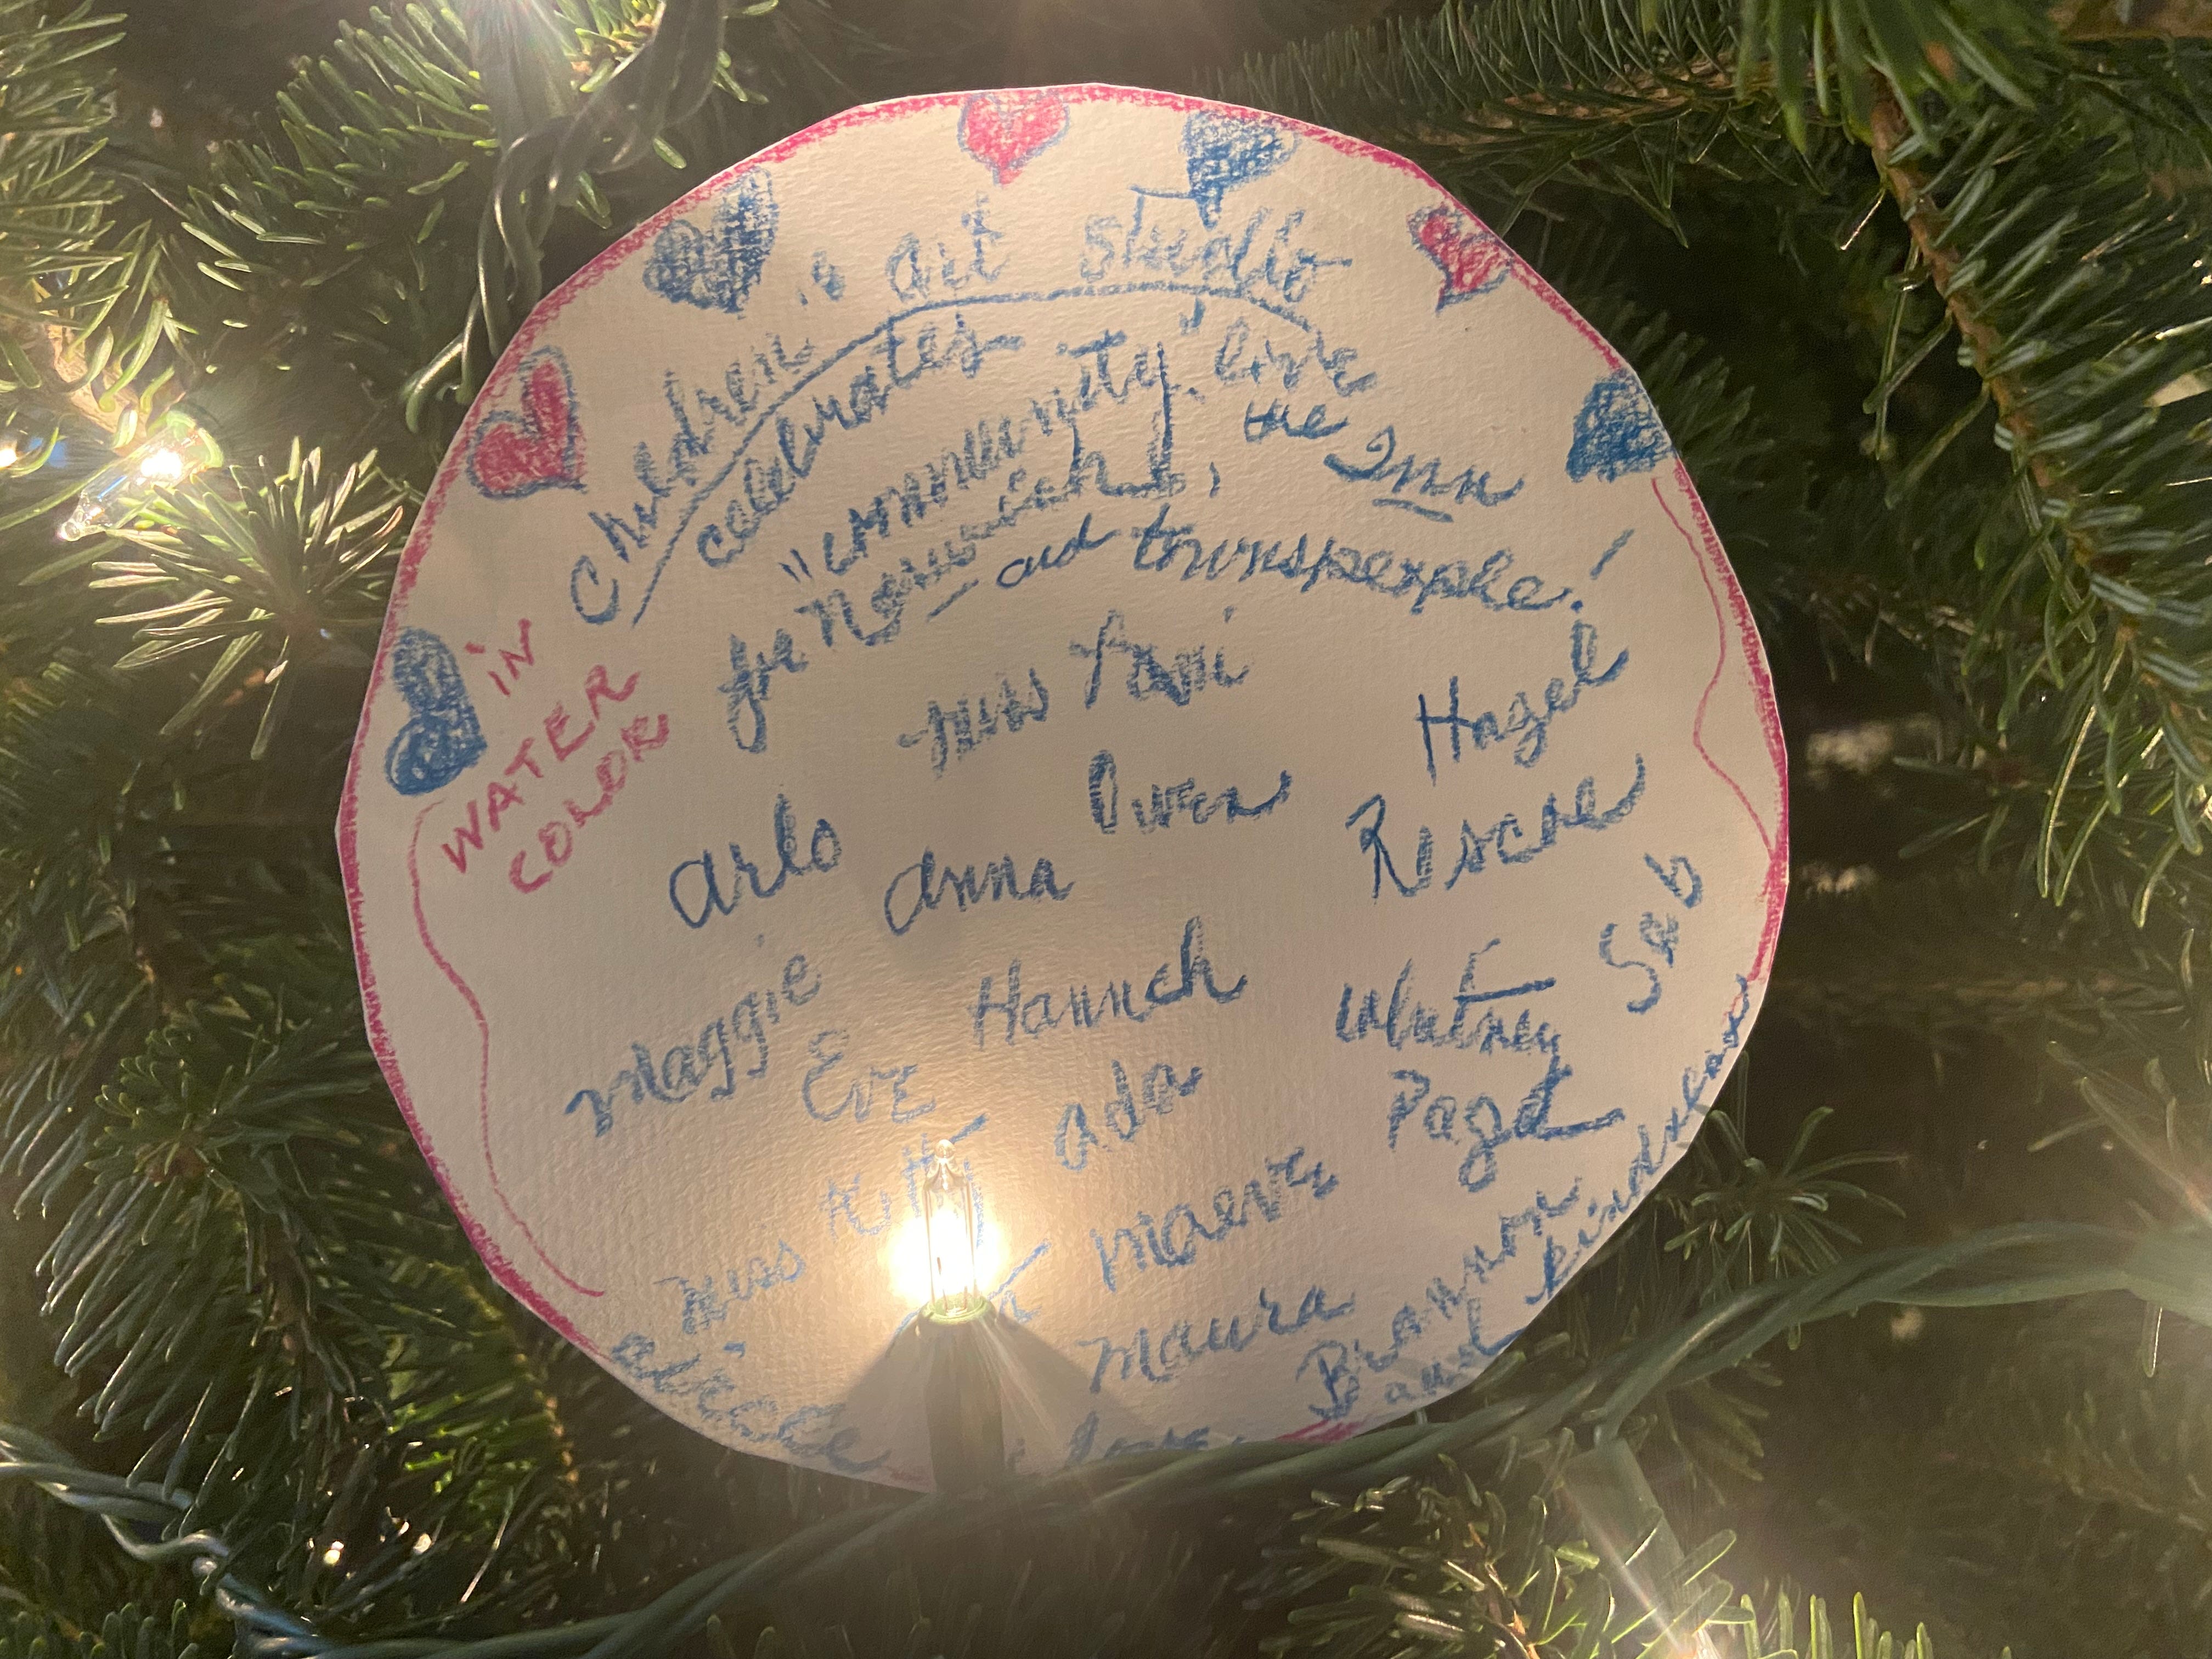 Children's art studio
celebrates
"community" love
for Norwich, the Inn
and townspeople!
IN
WATER
COLOR
Miss Toni
Hazel
Owen
Arlo
Anna
Maggie
Hannah
Whitney
Seb
Eve
Ada
Page
Miss
Maeve
Maura
Brannon
Alice
love
and kindness